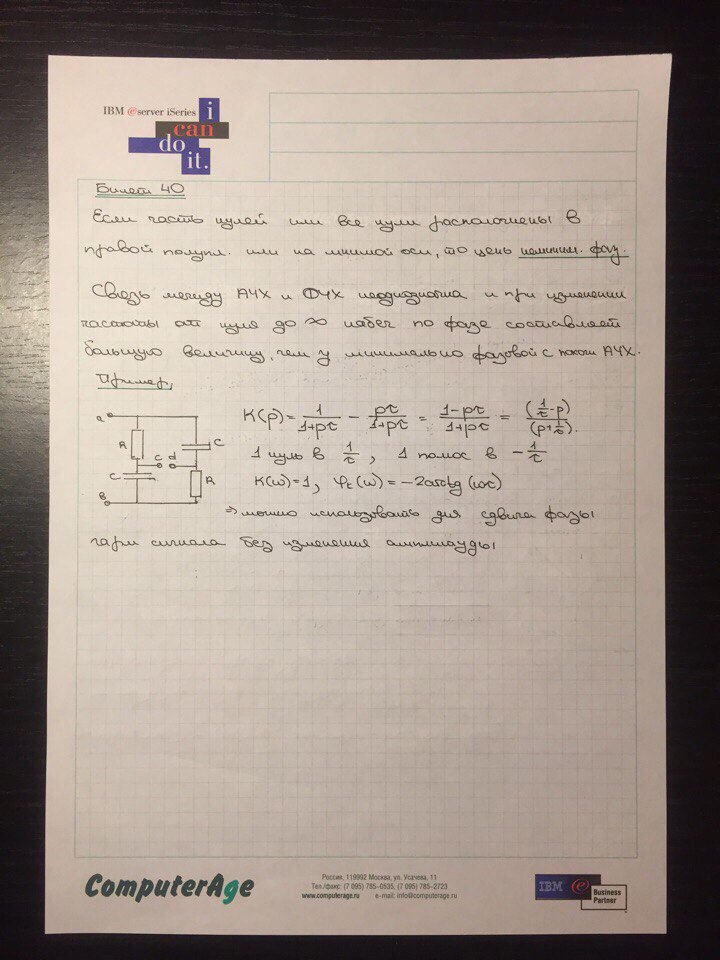 IBM e server iSeries
i
can
do
it.
Билет 40
Если часть нулей или все нули расположены в
правой полупл. или на мнимой оси, то цепь неминим. фаз.
Связь между АЧХ и ФЧХ неоднозначна и при изменении
частоты от нуля до ∞ набег по фазе составляет
большую величину, чем у минимально фазовой с такой АЧХ.
Пример,
a
R
C
c
d
C
R
в
K(p) = 1/(1+pτ) - pτ/(1+pτ) = (1-pτ)/(1+pτ) = (1/τ-p)/(p+1/τ).
1 нуль в 1/τ, 1 полюс в -1/τ
K(ω)=1, φ(ω)=-2arctg(ωτ)
⇒ можно использовать для сдвига фазы
гарм сигнала без изменения амплитуды
ComputerAge
Россия, 119992 Москва, ул. Усачева, 11
Тел./факс: (7 095) 785-0535, (7 095) 785-2723
www.computerage.ru e-mail: info@computerage.ru
IBM e Business
Partner